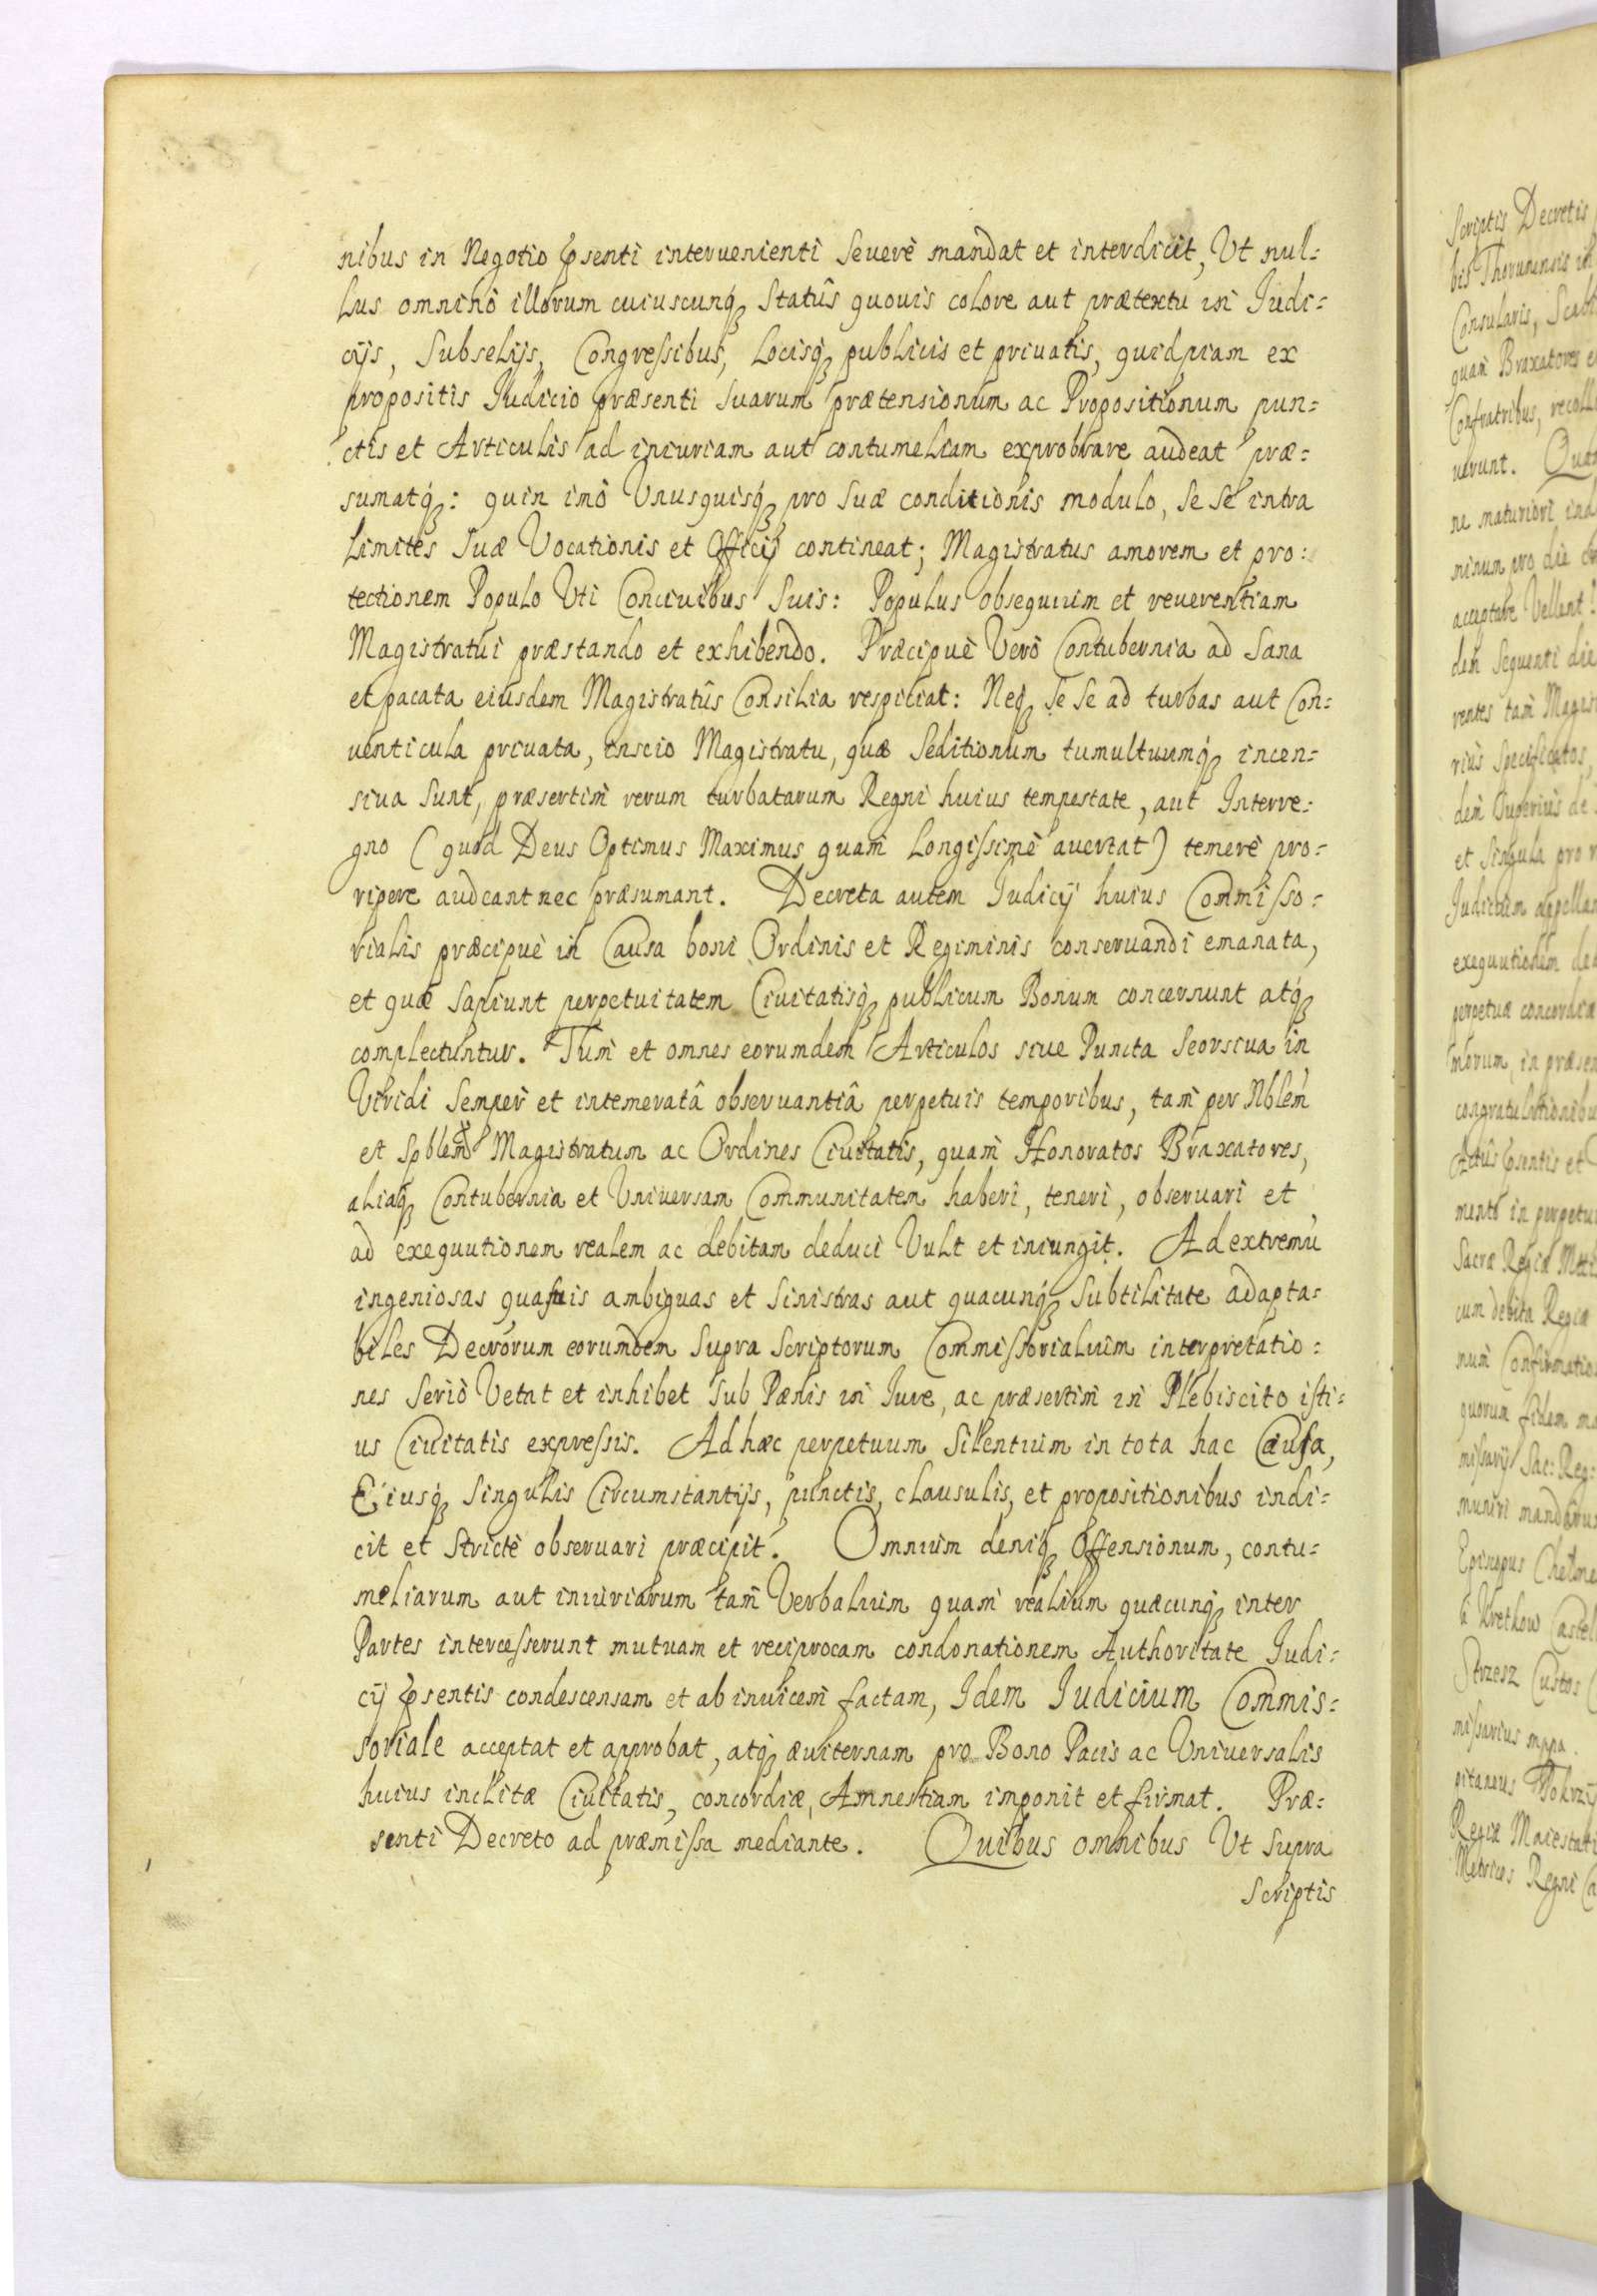 nibus in Negotio p̱senti interuenienti Seuerè mandat et interdicit, Vt nul=
lus omninò illorum cuiuscunq̃ Statûs quouis colore aut prætextu in Iudi=
cijs, Subselijs, Congreſsibus, Locisq̃ publicis et priuatis, quidpiam ex
propositis Iudicio præsenti Suarum prætensionum ac Propositionum pun=
ctis et Articulis ad iniuriam aut contumeliam exprobrare audeat præ=
sumatq̃: quin imò Vnusquisq̃ pro Suæ conditionis modulo, Se Se intra
Limites Suæ Vocationis et Officij contineat; Magistratus amorem et pro:
tectionem Populo Vti Conciuibus Suis: Populus obsequium et reuerentiam
Magistratui præstando et exhibendo. Præcipuè Verò Contubernia ad Sana
et pacata eiusdem Magistratûs Consilia respiciat: Neq̃ Se Se ad turbas aut Con=
uenticula priuata, inscio Magistratu, quæ Seditionum tumultuumq̃ incen=
siua Sunt, præsertim rerum turbatarum Regni huius tempestate, aut Interre=
gno (quod Deus Optimus Maximus quam Longiſsimè auertat) temerè pro=
ripere audeant nec præsumant. Decreta autem Iudicij huius Commiſso=
rialis præcipuè in Causa boni Ordinis et Regiminis conseruandi emanata,
et quæ Sapiunt perpetuitatem Ciuitatisq̃ publicum Bonum concernunt atq̃
complectuntur. Tum et omnes eorumdem Articulos siue Puncta Seorsiua in
Viridi Semper et intemeratâ obseruantiâ perpetuis temporibus, tam per Nblem
et Spblem Magistratum ac Ordines Ciuitatis, quam Honoratos Braxatores,
aliaq̃ Contubernia et Vniuersam Communitatem haberi, teneri, obseruari et
ad exequutionem realem ac debitam deduci Vult et iniungit. Ad extremu
ingeniosas quasuis ambiguas et Sinistras aut quacunq̃ Subtilitate adapta=
biles Decrorum eorumdem Supra Scriptorum Commiſsorialium interpretatio=
nes Seriò Vetat et inhibet Sub Pænis in Iure, ac præsertim in Plebiscito iſti=
us Ciuitatis expreſsis. Ad hæc perpetuum Silentium in tota hac Cauſa,
Eiusq̃ Singulis Circumstantijs, punctis, clausulis, et propositionibus indi=
cit et Strictè obseruari præcipit. Omnium deniq̃ Offensionum, contu=
meliarum aut iniuriarum tam Verbalium quam realium quæcunq̃ inter
Partes interceſserunt mutuam et reciprocam condonationem Authoritate Iudi=
cij p̱sentis condescensam et ab inuicem factam, Idem Iudicium Commis=
soriale acceptat et approbat, atq̃ æuiternam pro Bono Pacis ac Vniuersalis
huius inclitæ Ciuitatis, concordiæ, Amnestiam imponit et firmat. Præ=
senti Decreto ad præmiſsa mediante. Quibus omnibus Vt Supra
Scriptis
Scriptis Decretis
bis Thorunensis
Consularis,
quam Braxatores
Confratribus,
uerunt.
ne maturiori
ninum pro die
acceptare Vellent
dem Sequenti die
rentes tam
rius Specificatos,
dem Superius de
et Singula pro
Iudicium
exequutionem
perpetuæ concordiæ
morum, in
Actûs p̱sentis et
Sacræ Regiæ
cum debita Regiæ
quorum fidem
miſsarij Sac: Reg:
Episcopus
à Kretkow
Strzesz Custos
miſsarius mppa.
Regiæ
Metrices Regni